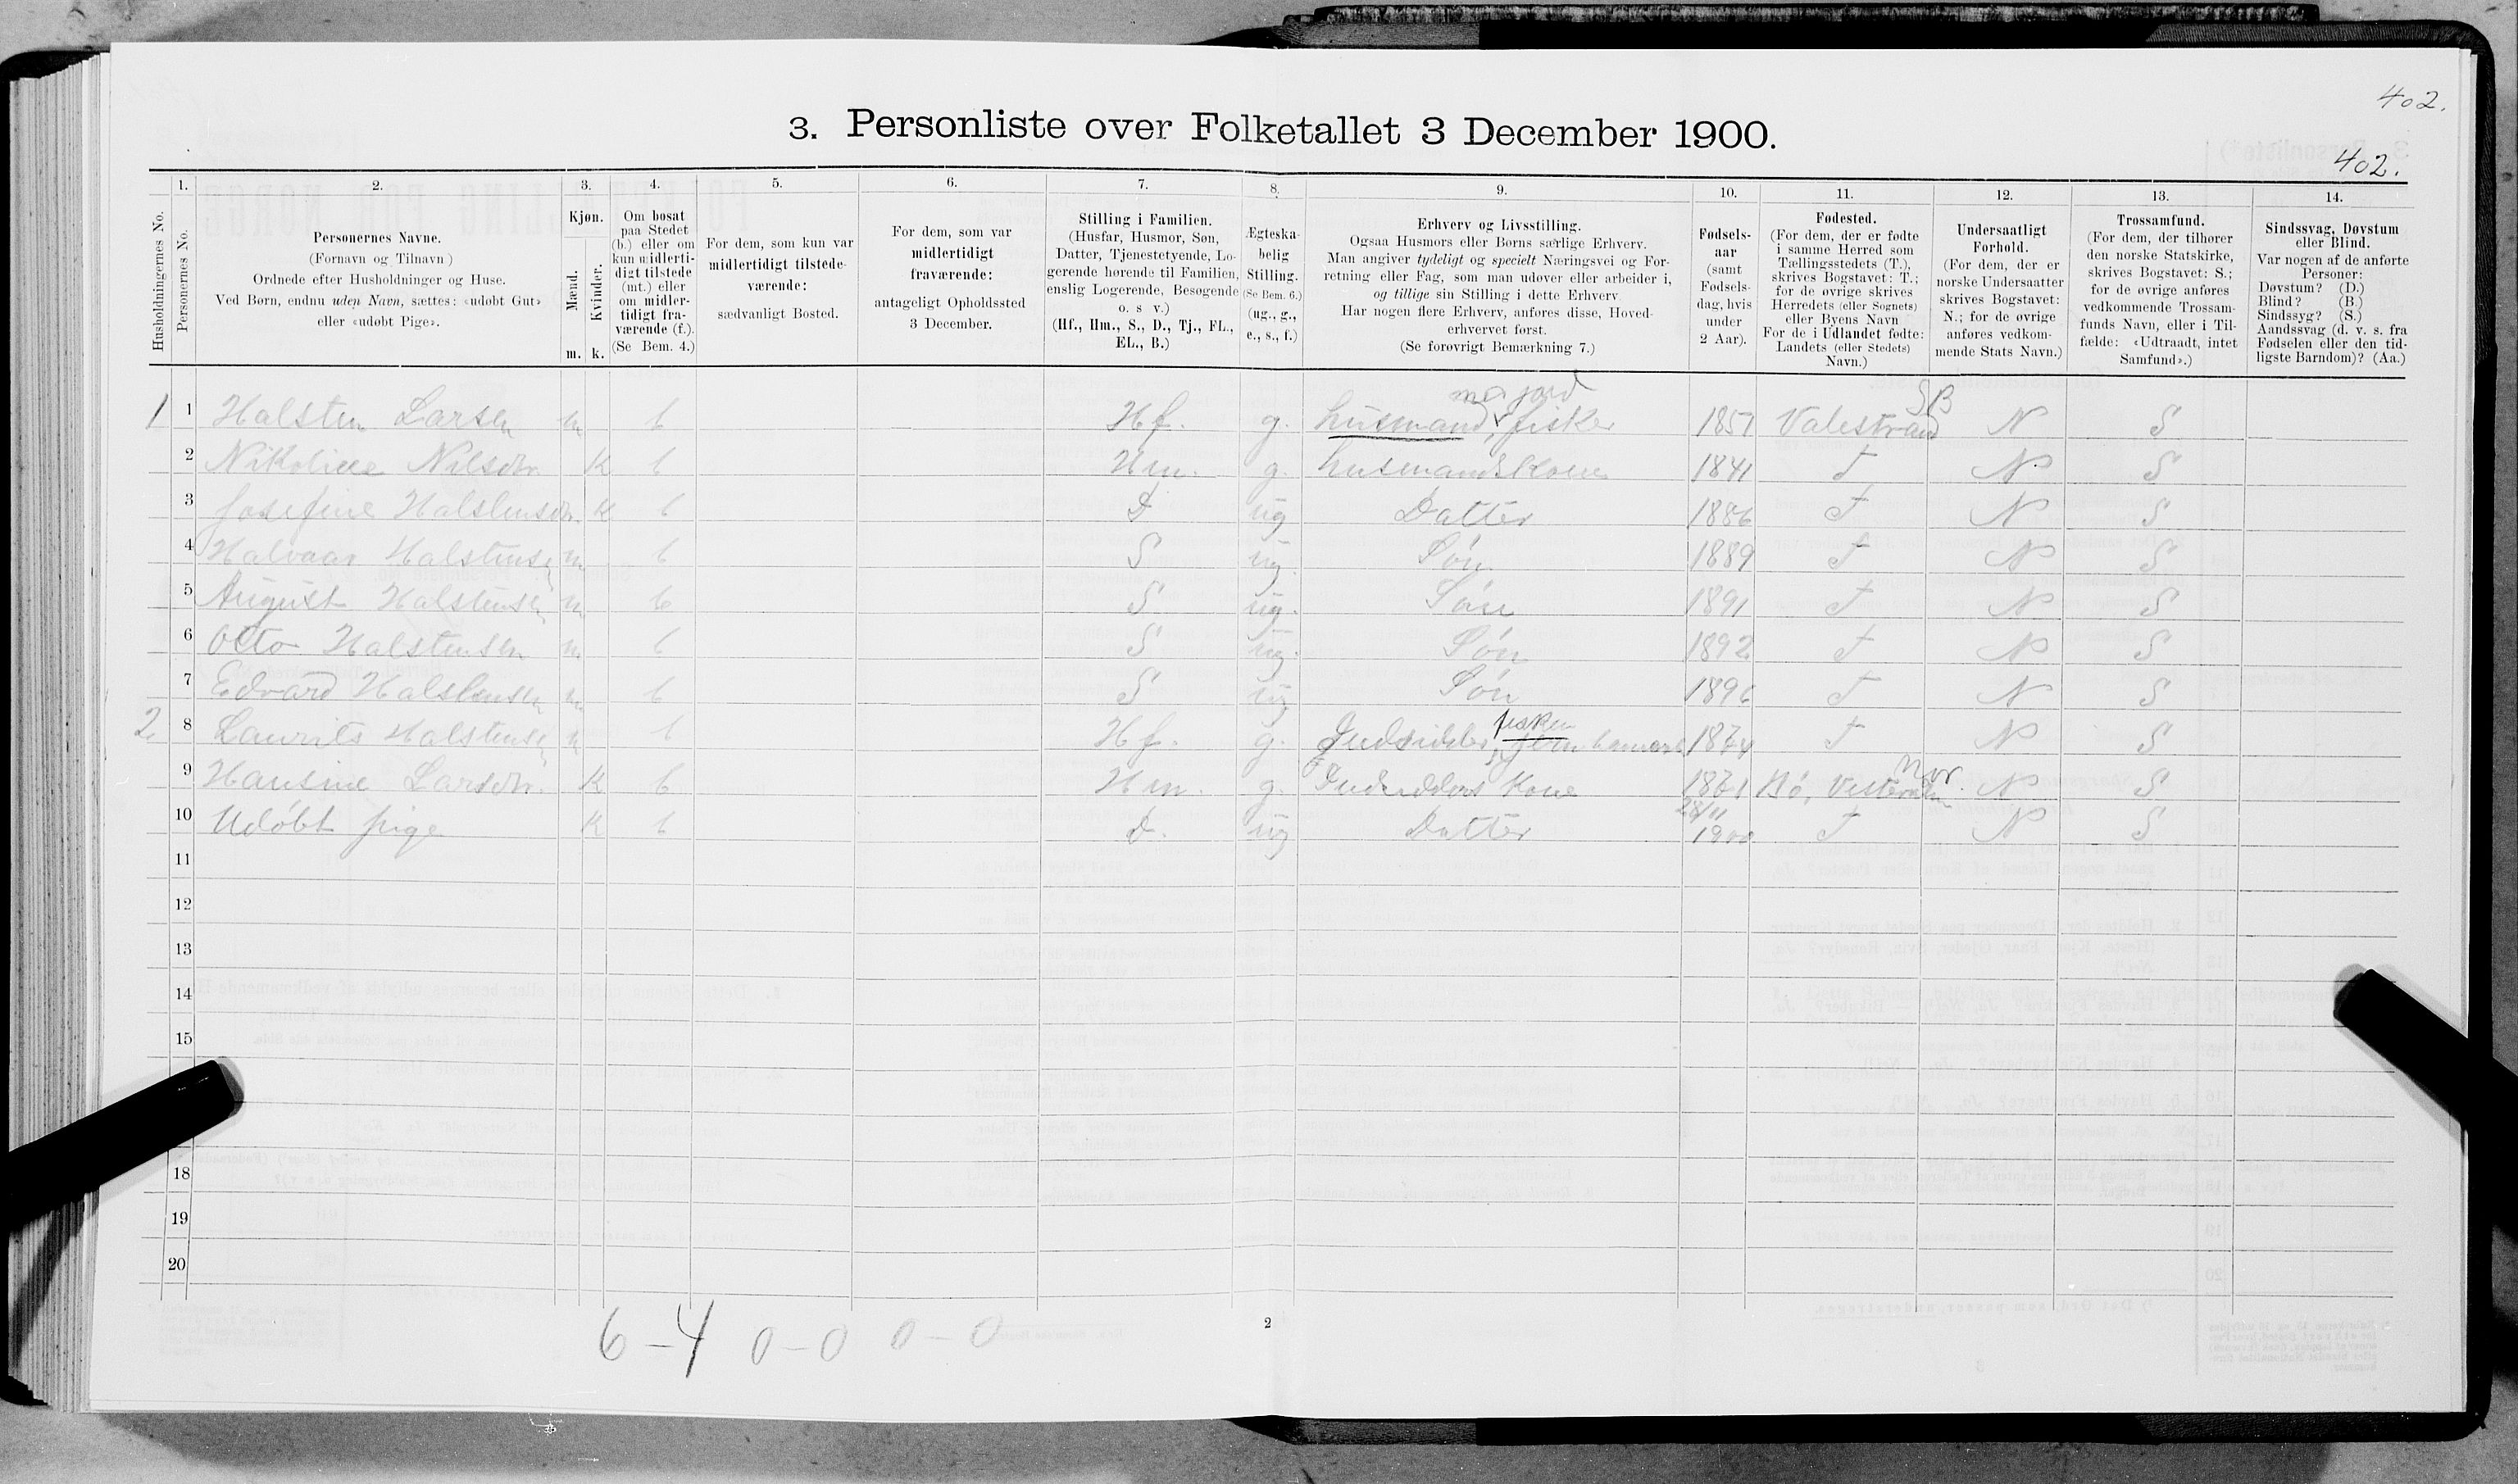 402.
3. Personliste over Folketallet 3 December 1900.
402.
1. 2. 3. 4. 5. 6. 7. 8. 9. 10. 11. 12. 13. 14.
Husholdningernes No.
Personernes No.
Personernes Navne.
(Fornavn og Tilnavn)
Ordnede efter Husholdninger og Huse.
Ved Børn, endnu uden Navn, sættes: «udøbt Gut»
eller «udøbt Pige».
Kjøn.
Mænd.
Kvinder.
m. k.
Om bosat
paa Stedet
(b.) eller om
kun midlerti-
digt tilstede
(mt.) eller
om midler-
tidigt fra-
værende (f.).
(Se Bem. 4.)
For dem, som kun var
midlertidigt tilstede-
værende:
sædvanligt Bosted.
For dem, som var
midlertidigt
fraværende:
antageligt Opholdssted
3 December.
Stilling i Familien.
(Husfar, Husmor, Søn,
Datter, Tjenestetyende, Lo-
gerende hørende til Familien,
enslig Logerende, Besøgende
o. s v.)
(Hf., Hm., S., D., Tj., FL.,
EL., B.)
Ægteska-
belig
Stilling.
(Se Bem. 6.)
(ug., g.,
e., s., f.)
Erhverv og Livsstilling.
Ogsaa Husmors eller Børns særlige Erhverv.
Man angiver tydeligt og specielt Næringsvei og For-
retning eller Fag, som man udøver eller arbeider i,
og tillige sin Stilling i dette Erhverv.
Har nogen flere Erhverv, anføres disse, Hoved-
erhvervet først.
(Se forøvrigt Bemærkning 7.)
Fødsels-
aar
(samt
Fødsels-
dag, hvis
under
2 Aar).
Fødested.
(For dem, der er fødte
i samme Herred som
Tællingsstedets (T.),
skrives Bogstavet: T.;
for de øvrige skrives
Herredets (eller Sognets)
eller Byens Navn
For de i Udlandet fødte:
Landets (eller Stedets)
Navn.)
Undersaatligt
Forhold.
(For dem, der er
norske Undersaatter
skrives Bogstavet:
N.; for de øvrige
anføres vedkom-
mende Stats Navn.)
Trossamfund.
(For dem, der tilhører
den norske Statskirke,
skrives Bogstavet: S.;
for de øvrige anføres
vedkommende Trossam-
funds Navn, eller i Til-
fælde: «Udtraadt, intet
Samfund».)
Sindssvag, Døvstum
eller Blind.
Var nogen af de anførte
Personer:
Døvstum? (D.)
Blind? (B.)
Sindssyg? (S.)
Aandssvag (d. v. s. fra
Fødselen eller den tid-
ligste Barndom)? (Aa.)
m jord SB
1 1 Halsten Larsen m b Hf. g. husmand, fisker 1851 Valestrand N S
2 Nikoline Nilsdtr. K b Hm. g. husmandskone 1841 T N S
3 Josefine Halstensdtr. K b D ug Datter 1886 T N S
4 Halvaar Halstensen m b S ug. Søn 1889 T N S
5 August Halstensen m b S ug. Søn 1891 T N S
6 Otto Halstensen m b S ug. Søn 1892 T N S
7 Edvard Halstensen m b S ug Søn 1896 T N S
fisker
2. 8 Laurits Halstensen m b Hf. g. Indsidder, 1874 T N S
9 Hansine Larsdtr. K b Hm. g. Kone 1871 Bø, Vesteraalen N S
10 Udøbt pige K b D. ug Datter 28/11 1900 T N S
11
12
13
14
15
18
19
20
6 – 4 0 – 0 0 – 0
2